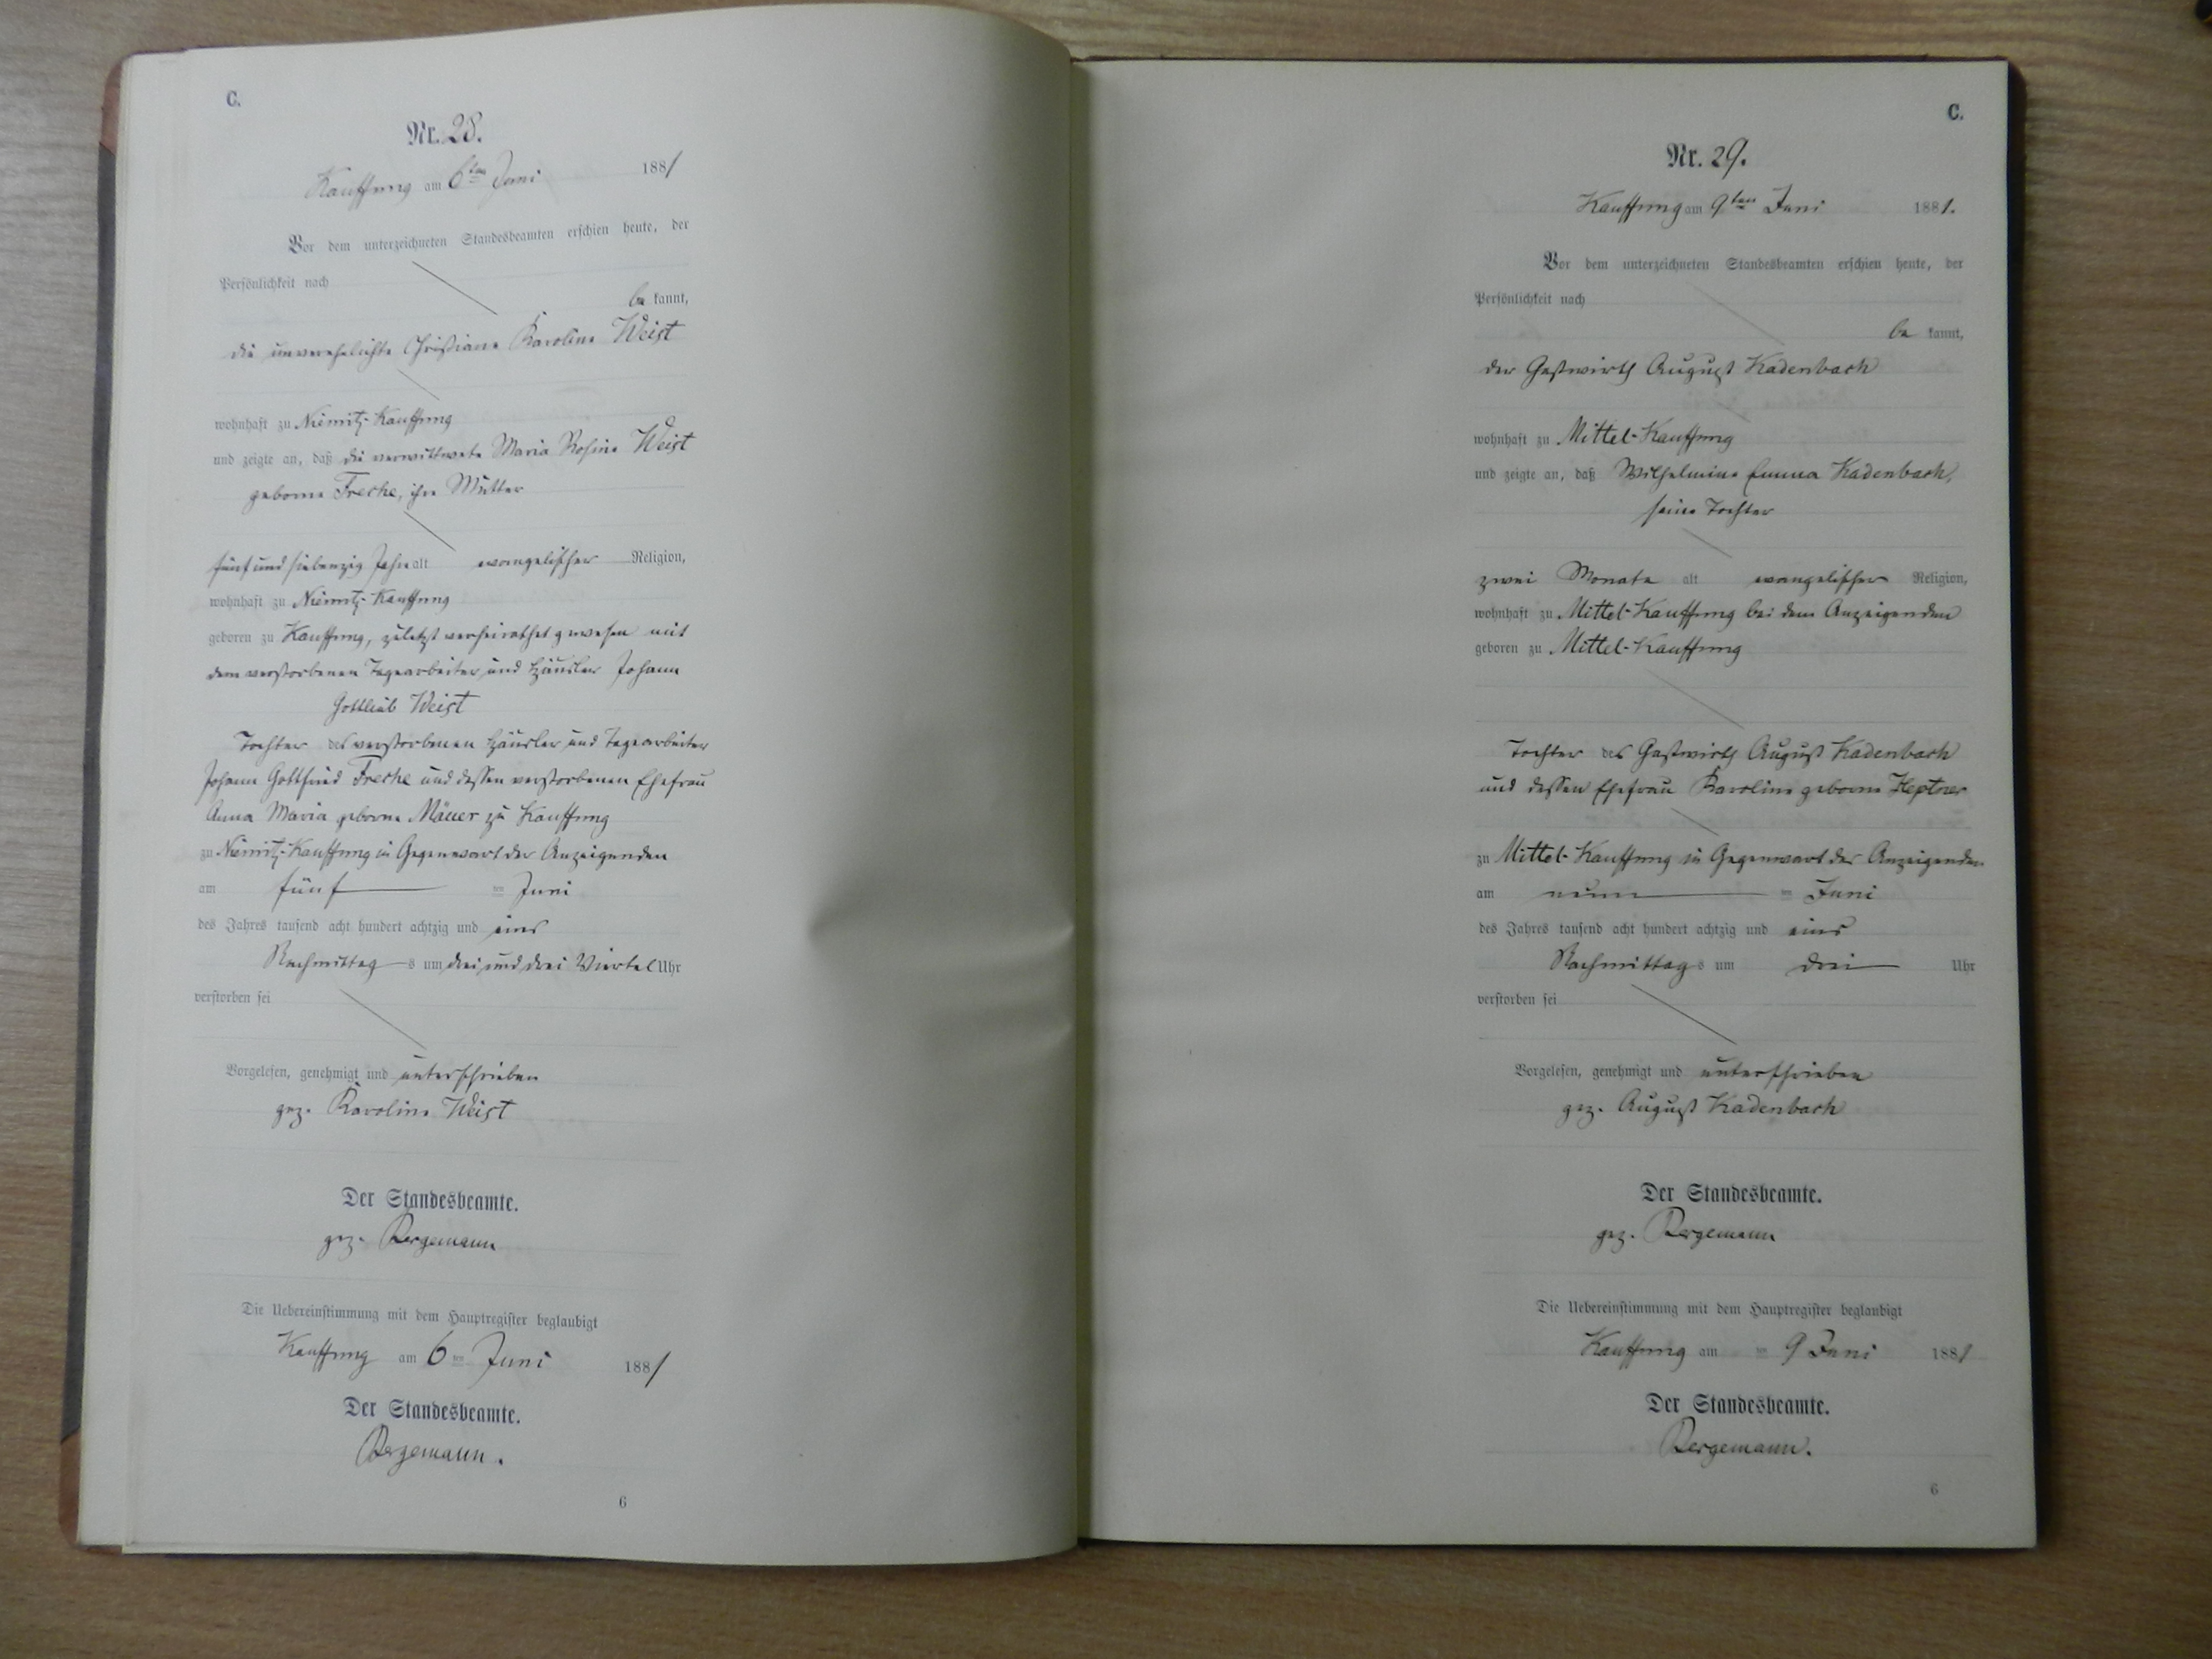 C.
Nr. 28.
Kauffung am 6ten Juni 1881
Vor dem unterzeichneten Standesbeamten erschien heute, der
Persönlichkeit nach
be kannt,
die unverehelichte Christiane Karoline Weist
wohnhaft zu Niemitz-Kauffung
und zeigte an, daß die verwittwete Maria Rosine Weist
geborne Freche, ihre Mutter
fünf und siebenzig Jahre alt evangelischer Religion,
wohnhaft zu Niemitz-Kauffung
geboren zu Kauffung, zuletzt verheirathet gewesen mit
dem verstorbenen Tagearbeiter und Häusler Johann
Gottlieb Weist
Tochter des verstorbenen Häusler und Tagearbeiter
Johann Gottfried Freche und dessen verstorbenen Ehefrau
Anna Maria geborne Mäuer zu Kauffung
zu Niemitz-Kauffung in Gegenwart der Anzeigenden
am fünf ten Juni
des Jahres tausend acht hundert achtzig und eins
Nachmittag s um drei und drei Viertel Uhr
verstorben sei
Vorgelesen, genehmigt und unterschrieben
gez. Karoline Weist
Der Standesbeamte.
gez. Bergemann
Die Uebereinstimmung mit dem Hauptregister beglaubigt
Kauffung am 6 ten Juni 1881
Der Standesbeamte.
Bergemann.
6
C.
Nr. 29.
Kauffung am 9ten Juni 1881.
Vor dem unterzeichneten Standesbeamten erschien heute, der
Persönlichkeit nach
be kannt,
der Gastwirth August Kadenbach
wohnhaft zu Mittel-Kauffung
und zeigte an, daß Wilhelmine Emma Kadenbach,
seine Tochter
zwei Monate alt evangelischer Religion,
wohnhaft zu Mittel-Kauffung bei dem Anzeigenden
geboren zu Mittel-Kauffung
Tochter des Gastwirth August Kadenbach
und dessen Ehefrau Karoline geborne Heptner
zu Mittel-Kauffung in Gegenwart des Anzeigenden
am neun ten Juni
des Jahres tausend acht hundert achtzig und eins
Nachmittag s um drei Uhr
verstorben sei
Vorgelesen, genehmigt und unterschrieben
gez. August Kadenbach
Der Standesbeamte.
gez. Bergemann
Die Uebereinstimmung mit dem Hauptregister beglaubigt
Kauffung am ten 9 Juni 1881
Der Standesbeamte.
Bergemann.
6